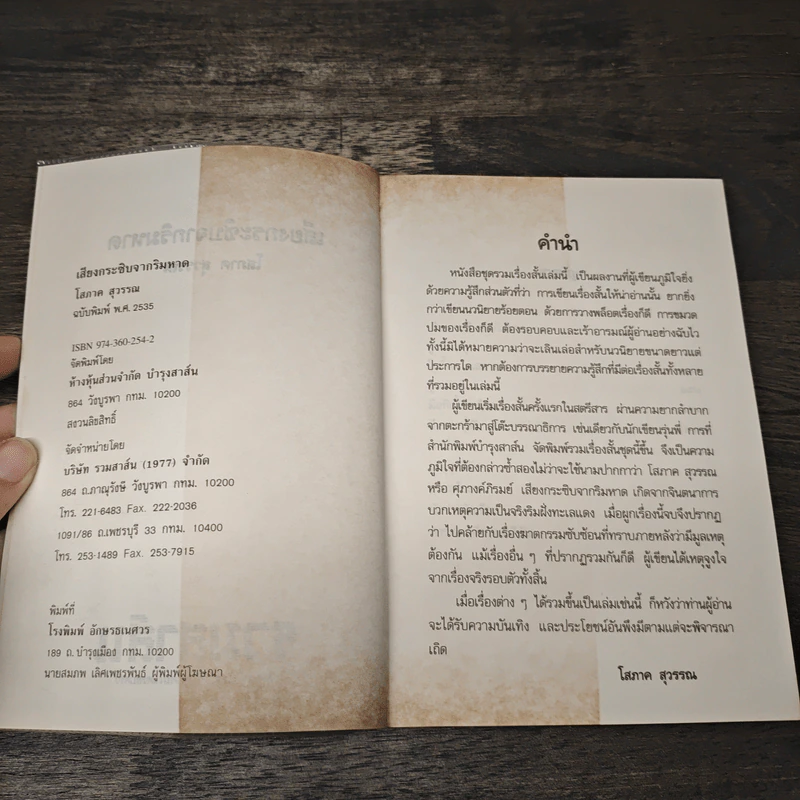 เสียงกระซิบจากริมหาด
โสภาค สุวรรณ
ฉบับพิมพ์ พ.ศ. 2535
ISBN 974-360-254-2
จัดพิมพ์โดย
ห้างหุ้นส่วนจำกัด บำรุงสาส์น
864 วังบูรพา กทม. 10200
สงวนลิขสิทธิ์
จัดจำหน่ายโดย
บริษัท รวมสาส์น (1977) จำกัด
864 ถ.ภาณุรังษี วังบูรพา กทม. 10200
โทร. 221-6483 Fax. 222-2036
1091/86 ถ.เพชรบุรี 33 กทม. 10400
โทร. 253-1489 Fax. 253-7915
พิมพ์ที่
โรงพิมพ์ อักษรธเนศวร
189 ถ.บำรุงเมือง กทม. 10200
นายสมภพ เลิศเพชรพันธ์ ผู้พิมพ์ผู้โฆษณา
คำนำ
หนังสือชุดรวมเรื่องสั้นเล่มนี้ เป็นผลงานที่ผู้เขียนภูมิใจยิ่ง
ด้วยความรู้สึกส่วนตัวที่ว่า การเขียนเรื่องสั้นให้น่าอ่านนั้น ยากยิ่ง
กว่าเขียนนวนิยายร้อยตอน ด้วยการวางพล็อตเรื่องก็ดี การขมวด
ปมของเรื่องก็ดี ต้องรอบคอบและเร้าอารมณ์ผู้อ่านอย่างฉับไว
ทั้งนี้มิได้หมายความว่าจะเลินเล่อสำหรับนวนิยายขนาดยาวแต่
ประการใด หากต้องการบรรยายความรู้สึกที่มีต่อเรื่องสั้นทั้งหลาย
ที่รวมอยู่ในเล่มนี้
ผู้เขียนเริ่มเรื่องสั้นครั้งแรกในสตรีสาร ผ่านความยากลำบาก
จากตะกร้ามาสู่โต๊ะบรรณาธิการ เช่นเดียวกับนักเขียนรุ่นพี่ การที่
สำนักพิมพ์บำรุงสาส์น จัดพิมพ์รวมเรื่องสั้นชุดนี้ขึ้น จึงเป็นความ
ภูมิใจที่ต้องกล่าวซ้ำสองไม่ว่าจะใช้นามปากกาว่า โสภาค สุวรรณ
หรือ ศุภางค์ภิรมย์ เสียงกระซิบจากริมหาด เกิดจากจินตนาการ
บวกเหตุความเป็นจริงริมฝั่งทะเลแดง เมื่อผูกเรื่องนี้จบจึงปรากฏ
ว่า ไปคล้ายกับเรื่องฆาตกรรมซับซ้อนที่ทราบภายหลังว่ามีมูลเหตุ
ต้องกัน แม้เรื่องอื่น ๆ ที่ปรากฏรวมกันก็ดี ผู้เขียนได้เหตุจูงใจ
จากเรื่องจริงรอบตัวทั้งสิ้น
เมื่อเรื่องต่าง ๆ ได้รวมขึ้นเป็นเล่มเช่นนี้ ก็หวังว่าท่านผู้อ่าน
จะได้รับความบันเทิง และประโยชน์อันพึงมีตามแต่จะพิจารณา
เถิด
โสภาค สุวรรณ